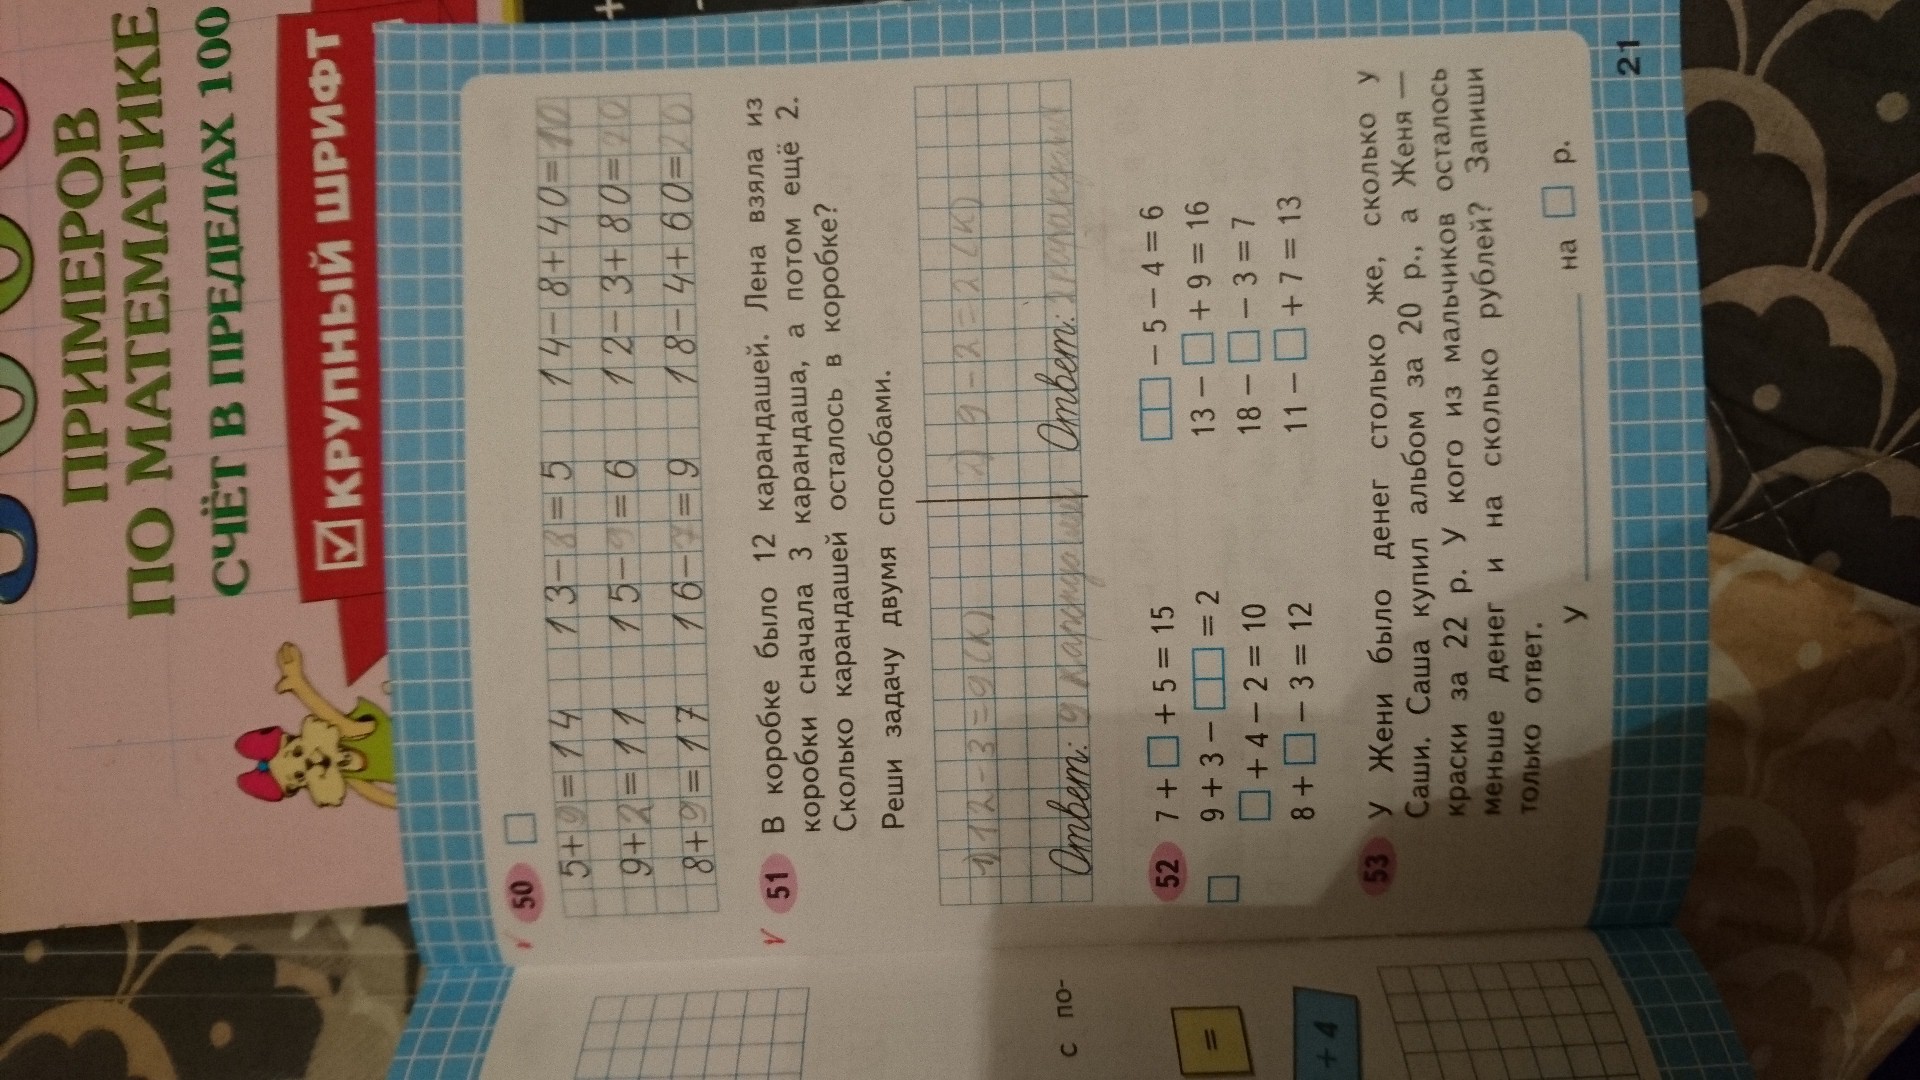 ПРИМЕРОВ
ПО МАТЕМАТИКЕ
СЧЁТ В ПРЕДЕЛАХ 100
КРУПНЫЙ ШРИФТ
50
5+9=14 13-8=5 14-8+40=10
9+2=11 15-9=6 12-3+80=
8+9=17 16-7=9 18-4+60=20
51 В коробке было 12 карандашей. Лена взяла из
коробки сначала 3 карандаша, а потом ещё 2.
Сколько карандашей осталось в коробке?
Реши задачу двумя способами.
1) 12-3=9(к) 2) 9-2=2(к)
Ответ: 9 Ответ: 2
52 7 + □ + 5 = 15 □□ − 5 − 4 = 6
9 + 3 − □□ = 2 13 − □ + 9 = 16
□ + 4 − 2 = 10 18 − □ − 3 = 7
8 + □ − 3 = 12 11 − □ + 7 = 13
53 У Жени было денег столько же, сколько у
Саши. Саша купил альбом за 20 р., а Женя —
краски за 22 р. У кого из мальчиков осталось
меньше денег и на сколько рублей? Запиши
только ответ.
У ______ на □ р.
21
с по-
=
+ 4